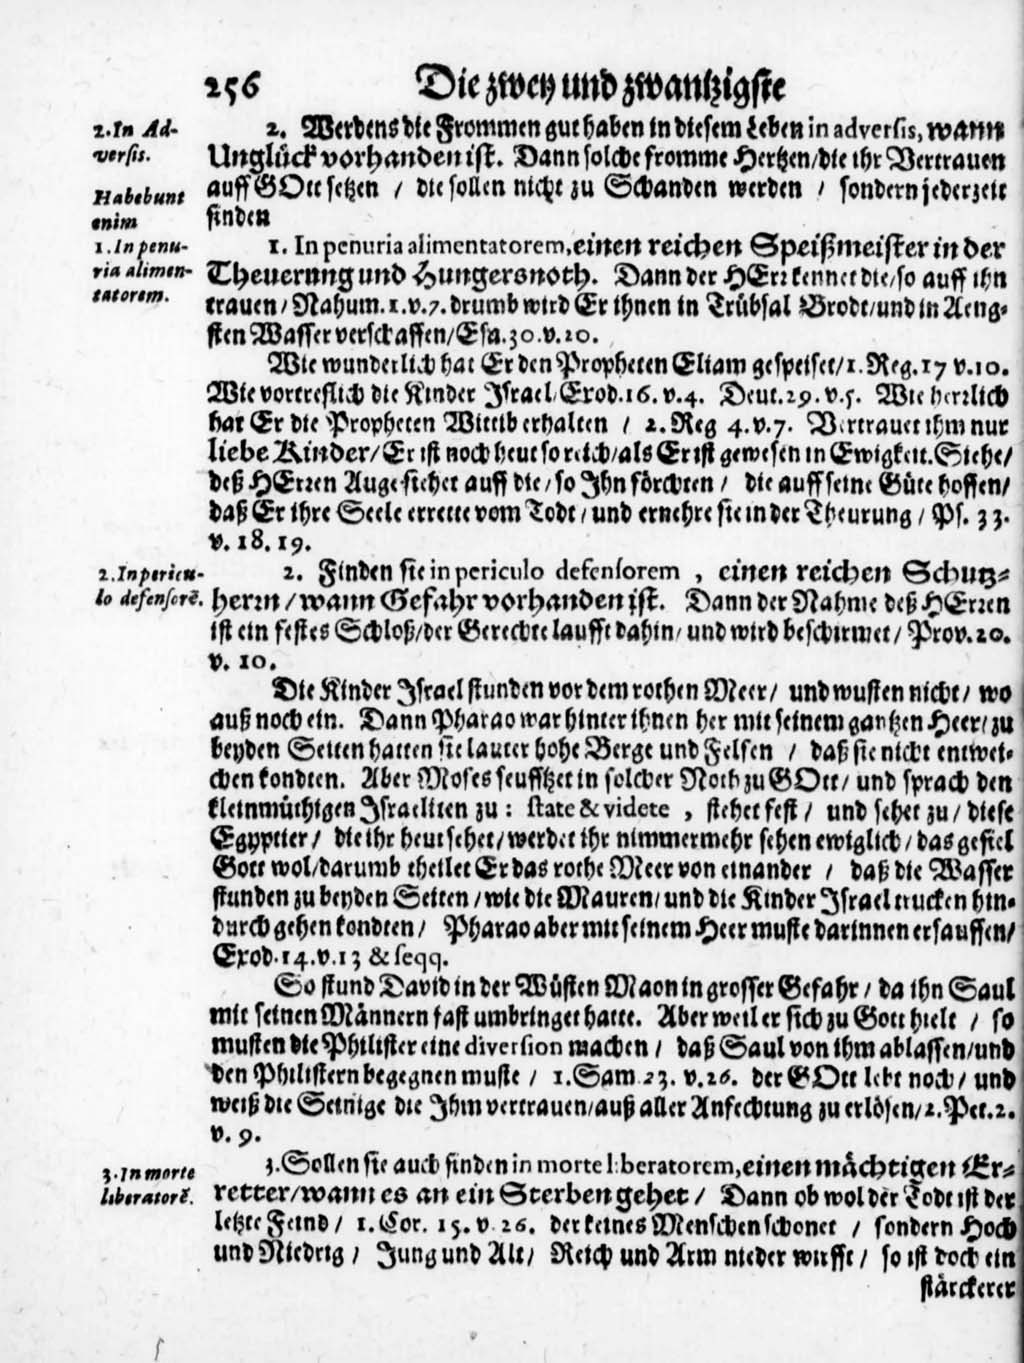 256 Die zwey und zwantzigste
2. In Ad-
versis.
Habebunt
enim
1. In penu-
ria alimen-
tatorem.
2. Werdens die Frommen gut haben in diesem Leben in adversis, wann
Unglück vorhanden ist. Dann solche fromme Hertzen/die ihr Vertrauen
auff GOtt setzen / die sollen nicht zu Schanden werden / sondern jederzeit
finden
1. In penuria alimentatorem, einen reichen Speißmeister in der
Theuerung und Hungersnoth. Dann der HErr kennet die/so auff ihn
trauen/Nahum.1.v.7. drumb wird Er ihnen in Trübsal Brodt/und in Aeng-
sten Wasser verschaffen/Esa.30.v.20.
Wie wunderlich hat Er den Propheten Eliam gespeiset/1.Reg.17 v.10.
Wie vortreflich die Kinder Israel/Exod.16.v.4. Deut.29.v.5. Wie herrlich
hat Er die Propheten Wittib erhalten / 2.Reg 4.v.7. Vertrauet ihm nur
liebe Kinder/Er ist noch heut so reich/als Er ist gewesen in Ewigkeit. Siehe/
deß HErren Auge siehet auff die/so Ihn förchten / die auff seine Güte hoffen/
daß Er ihre Seele errette vom Todt/und ernehre sie in der Theurung/Ps. 33.
v. 18. 19.
2. In pericu-
lo defensorē.
2. Finden sie in periculo defensorem , einen reichen Schutz-
herrn/wann Gefahr vorhanden ist. Dann der Nahme deß HErren
ist ein festes Schloß/der Gerechte laufft dahin/und wird beschirmet/Prov.20.
v. 10.
Die Kinder Israel stunden vor dem rothen Meer/ und wusten nicht/ wo
auß noch ein. Dann Pharao war hinter ihnen her mit seinem gantzen Heer/zu
beyden Seiten hatten sie lauter hohe Berge und Felsen / daß sie nicht entwei-
chen kondten. Aber Moses seufftzet in solcher Noth zu GOtt/ und sprach den
kleinmüthigen Israeliten zu: state & videte , stehet fest / und sehet zu / diese
Egyptier/ die ihr heut sehet/werdet ihr nimmermehr sehen ewiglich/das gefiel
Gott wol/darumb theilet Er das rothe Meer von einander / daß die Wasser
stunden zu beyden Seiten/wie die Mauren/und die Kinder Israel trucken hin-
durch gehen kondten/ Pharao aber mit seinem Heer muste darinnen ersauffen/
Exod.14.v.13 & seqq.
So stund David in der Wüsten Maon in grosser Gefahr/da ihn Saul
mit seinen Männern fast umbringet hatte. Aber weil er sich zu Gott hielt / so
musten die Philister eine diversion machen / daß Saul von ihm ablassen/und
den Philistern begegnen muste / 1.Sam 23. v.26. der GOtt lebt noch/ und
weiß die Seinige die Ihm vertrauen/auß aller Anfechtung zu erlösen/2.Pet.2.
v. 9.
3. In morte
liberatorē.
3. Sollen sie auch finden in morte liberatorem, einen mächtigen Er-
retter/wann es an ein Sterben gehet/ Dann ob wol der Todt ist der
letzte Feind/ 1.Cor. 15. v 26. der keines Menschen schonet / sondern Hoch
und Niedrig/ Jung und Alt/ Reich und Arm nieder wirfft/ so ist doch ein
stärckerer